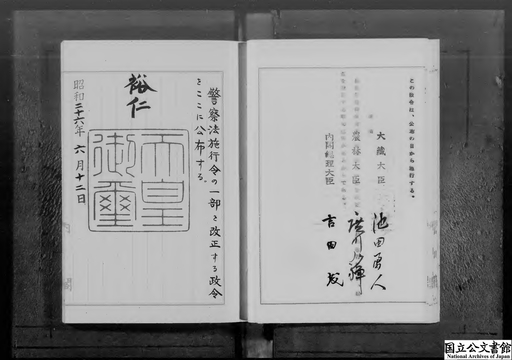 警察法施行令の一部を改正する政令
をここに公布する。
裕仁
天皇
御璽
昭和二十六年六月十二日
この政令は、公布の日から施行する。
大蔵大臣 池田勇人
農林大臣 廣川弘禪
内閣総理大臣 吉田茂
国立公文書館
National Archives of Japan